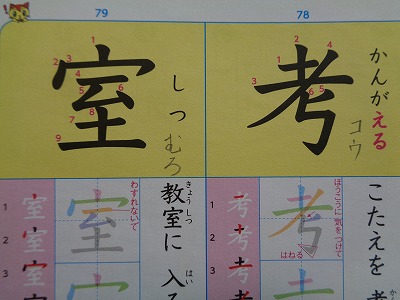 79
78
室
しつ
むろ
考
かんがえる
コウ
わすれないで
教室に 入る
きょうしつ
はい
ほうこうに 気をつけて
はねる
こたえを 考
かんが
1
2
3
室
室
室
室
1
2
3
考
考
考
考